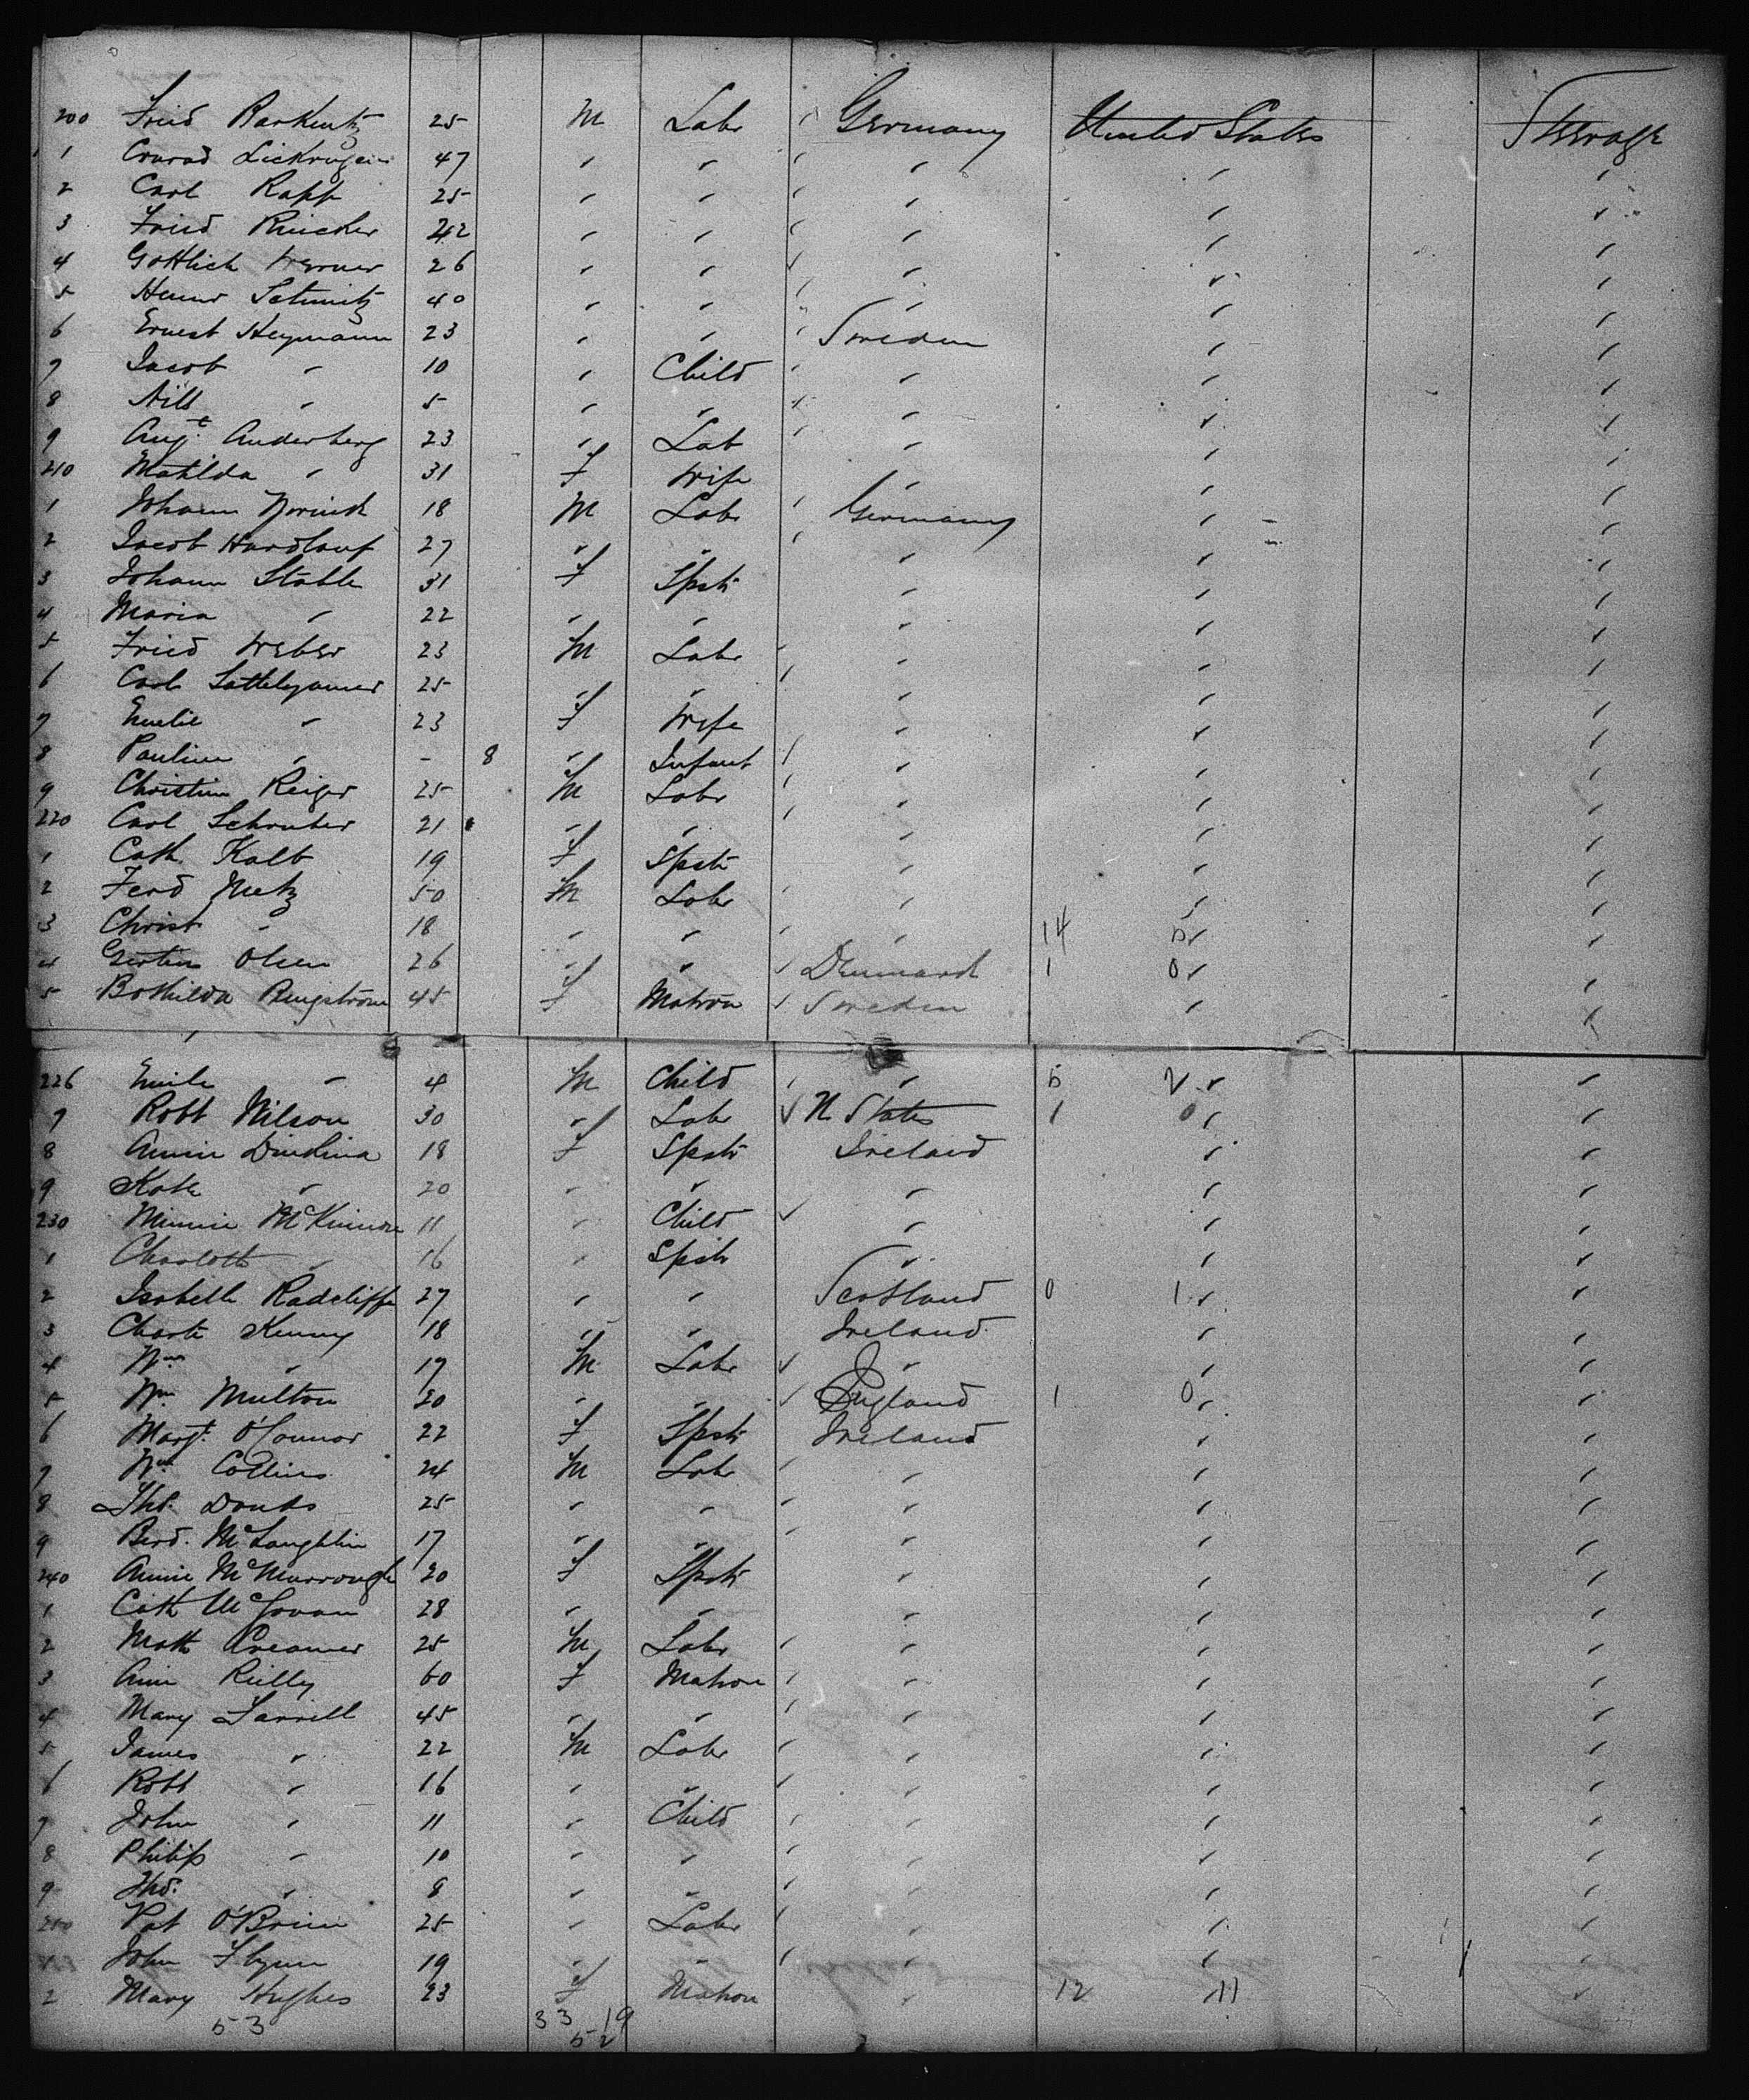 200 Fried Barkentz 25 M Labr Germany United States Steerage
1 Conrad 47 " " " " "
2 Carl Rapp 25 " " " " "
3 Fried Riecker 42 " " " " "
4 Gottlieb Werner 26 " " " " "
5 Schmitz 40 " " " " "
6 Ernest Heymann 23 " " Sweden " "
7 Jacob " 10 " Child " " "
8 Nils " 5 " " " " "
9 Augt. Anderberg 23 " Lab " " "
210 Matilda " 31 F Wife " " "
1 Johann 18 M Labr Germany " "
2 Jacob Hardlauf 27 " " " " "
3 Johann Stable 31 F Spstr " " "
4 Maria " 22 " " " " "
5 Fried Weber 23 M Labr " " "
6 Carl 25 " " " " "
7 Emelie " 23 F Wife " " "
8 Pauline " - 8 " Infant " " "
9 Christine Reiger 25 M Labr " " "
220 Carl Schruber 21 " " " " "
1 Cath. Kalb 19 F Spstr " " "
2 Ferd Metz 50 M Labr " " "
3 Christ " 18 " " " 14 5 " "
4 Olsen 26 " " Denmark 1 0 " "
5 Bothilda Bengstrom 45 F Matron Sweden " "
226 Emile " 4 M Child " 5 2 " "
7 Robt Wilson 30 " Labr U States 1 0 " "
8 Annie 18 F Spstr Ireland " "
9 Kate " 20 " " " " "
230 Minnie McKinnon 11 " Child " " "
1 Charlotte " 16 " Spstr " " "
2 Isabelle Radcliffe 27 " " Scotland 0 1 " "
3 Charlt Kenny 18 " " Ireland " "
4 Wm " 17 M Labr " " "
5 Wm Multon 20 " " England 1 0 " "
6 Margt. O'Connor 22 F Spstr Ireland " "
7 Wm Collins 24 M Labr " " "
8 Thos. Dowds 25 " " " " "
9 Berd. McLaughlin 17 " " " " "
240 Annie McMurrough 20 F Spstr " " "
1 Cath McGowan 28 " " " " "
2 Matt Creamer 25 M Labr " " "
3 Ann Reilly 60 F Matron " " "
4 Mary Farrell 45 " " " " "
5 James " 22 M Labr " " "
6 Robt " 16 " " " " "
7 John " 11 " Child " " "
8 Philip " 10 " " " " "
9 Thos. " 8 " " " " "
250 Pat O'Brien 25 " Labr " " "
1 John Flynn 19 " " " " "
2 Mary Hughes 23 F Matron " 12 11 "
53 33 19
52